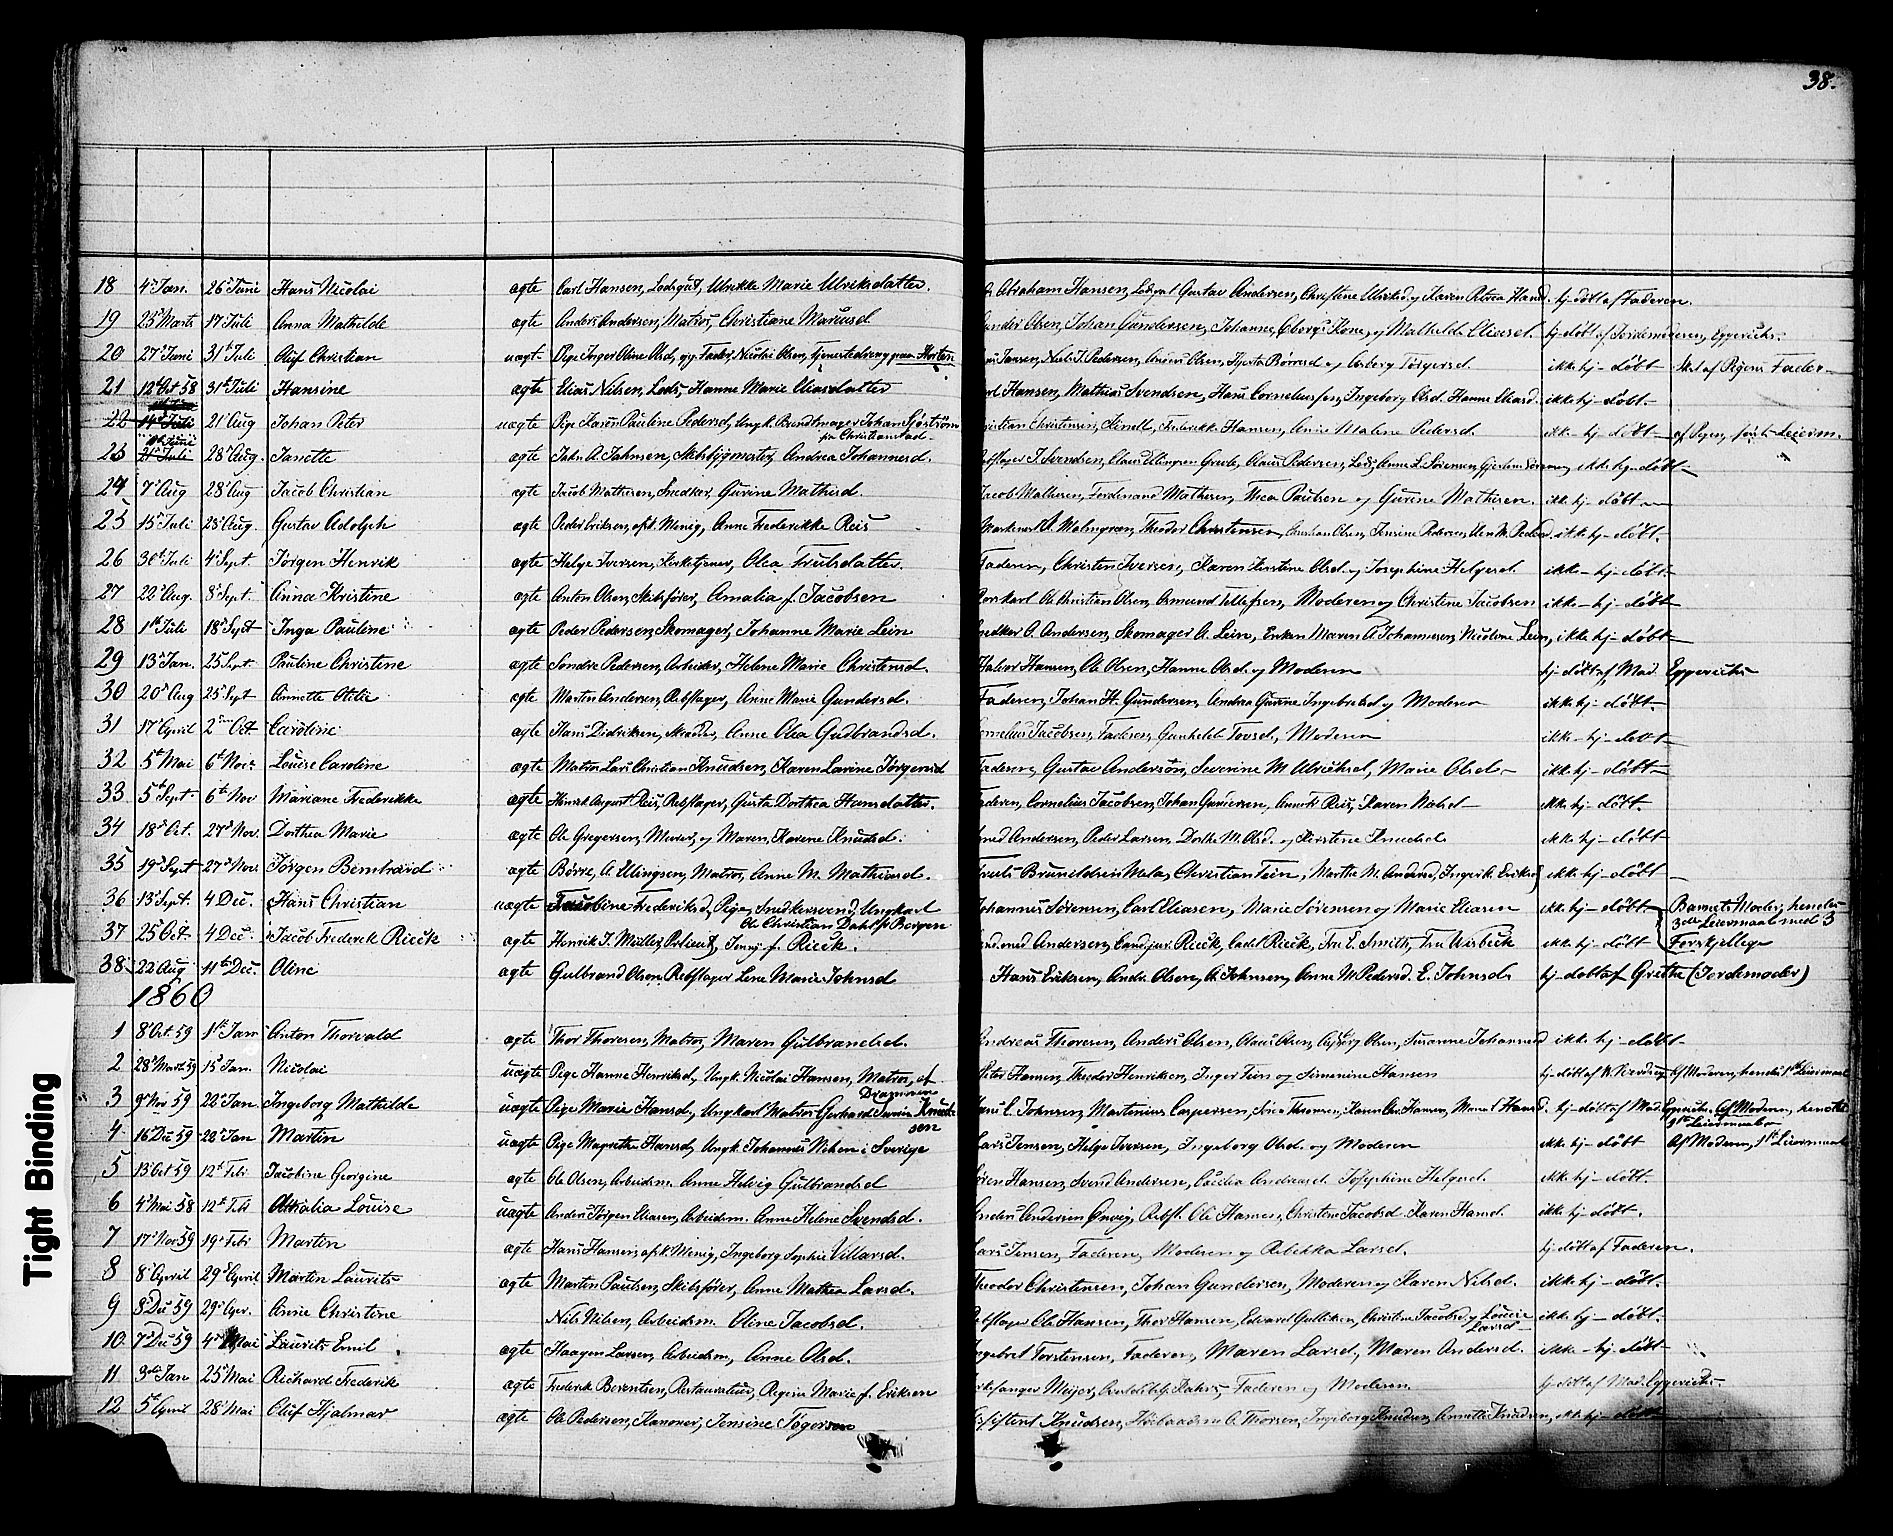 38.
18 4 Jan. 26 Juni Hans Nicolai ægte Carl Hansen, Lodsgut, Ulrikke Marie Ulriksdatter. Abraham Hansen, Gustav Andersen, Christine Ulriksd. og Karen Petrea Hansd. hj-døbt af Faderen.
19 25 Marts 17 Juli Anna Mathilde ægte Anders Andersen, Matros, Christiane Mariusd. Olsen, Johan Gundersen, Johanne Kone, og Mathilde Eliasd. hj-døbt af Jordemoderen, Eggerichs.
20 27 Juni 31 Juli Oluf Christian uægt. Pige Inger Oline Olsd, Fader, Nicolai Olsen, Tjenestedreng paa Horten Jansen, Niels J. Pedersen, Anders Olsen, og Torgersd. ikke hj-døbt af Pigens Fader
21 12 Oct 58 31 Juli Hansine ægte Elias Nilsen, Lods, Hanne Marie Eliasdatter Hansen, Mathias Svendsen, Hans Corneliussen, Ingeborg Olsd. Hanne Eliasd. ikke hj-døbt.
22 14 Juli 21 Aug Johan Peter uægte Pige Karen Pauline Pedersd, Ungk. Bundtmager Johan Sjøstrøm fra Christianstad Christian Christensen, Frederikke Hansen, Malene Pedersd. ikke-hj-døbt af Pigen, første Leierm.
23 21 Juli 28 Aug. Janette ægte Jahn A. Jahnsen, Skibsbygmester, Andrea Johannesd. J. Svendsen, Claus Ellingsen Olaus Pedersen, Lods, Anne L. Sørensen, ikke hj-døbt
24 7 Aug 28 Aug Jacob Christian ægte Jacob Mathisen, Snedker, Gurine Mathisd. Jacob Mathisen, Ferdinand Mathisen, Thea Paulsen og Gurine Mathisen. ikke hj-døbt
25 15 Juli 28 Aug. Gustav Adolph ægte Peder Eriksen, afsk. Menig, Anne Frederikke Reis Malmgreen, Theodor Christensen, Christian Olsen, Jensine Pedersen, ikke hj-døbt.
26 30 Juli 4 Sept. Jørgen Henrik ægte Helge Iversen, Kirketjener, Olea Trulsdatter. Faderen, Christen Iversen, Karen Kirstine Olsd. og Josephine Helgesd. ikke-hj-døbt
27 20 Aug. 8 Sept. Anna Kristine ægte Anton Olsen, Skibsfører, Amalia f. Jacobsen Ole Christian Olsen, Osmund Tellefsen, Moderen og Christine Jacobsen ikke-hj-døbt
28 1 Juli 18 Sept Inga Pauline ægte Peder Pedersen, Skomager, Johanne Marie Lein Snedker O. Andersen, Skomager A. Lein, Enken Maren A. Johannesen, Nicoline Lein, ikke hj-døbt
29 13 Jan. 25 Sept. Pauline Christine ægte Søndre Pedersen, Arbeider, Helene Marie Christensd. Halvor Hansen, Ole Olsen, Hanne Olsd. og Moderen hj-døbt af Mad. Eggerichs
30 20 Aug 25 Sept Annette Otilie ægte Martin Andersen, Rebslager, Anne Marie Gundersd. Faderen, Johan H. Gundersen, Andrea Gurine Ingebretsd og Moderen ikke hj-døbt
31 17 April 2 Oct Caroline ægte Hans Didriksen, Skræder, Anne Olea Gudbrandsd. Cornelius Jacobsen, Faderen, Gunhild Tovsd., Moderen ikke-hj-døbt
32 5 Mai 6 Nov. Louise Caroline ægte Matros Lars Christian Knudsen, Karen Lavine Jørgensd Faderen, Gustav Andersen, Severine M. Ulrichsd, Marie Olsd. ikke hj-døbt
33 5 Sept. 6 Nov Mariane Frederikke ægte Henrik August Reis, Rebslager, Gusta Dorthea Hansdatter. Faderen, Cornelius Jacobsen, Johan Gundersen, Reis, Karen Nilsd ikke hj-døbt.
34 18 Oct. 27 Nov. Dorthea Marie ægte Ole Gregersen, Murer, og Maren Karene Knudsd. Andersen, Peder Larsen, Dorthe M. Olsd. og Kirstine Knudsd ikke hj-døbt
35 19 Sept 27 Nov. Jørgen Bernhard ægte Børre A. Ellingsen, Matros, Anne M. Mathiasd. Truls Brunildsen Christian Marthe M. Andersd, Inger K. Eriksd ikke hj-døbt
36 13 Sept. 4 Dec. Hans Christian uægte Jacobine Frederiksd, Pige, Snedkersvend, Ungkarl Ole Christian Dahl fra Bergen Johannes Sørensen, Carl Eliasen, Marie Sørensen og Marie Eliasen ikke hj-døbt Barnets Moder, hendes 3die Leiermaal med 3 Forskjellige
37 25 Oct. 4 Dec. Jacob Frederik Rieck ægte Henrik J. Müller, Jenny f. Rieck. Andersen, Cand. jur. Rieck, Cadet Rieck, Fru E. Smith, Fru Wisbech ikke hj-døbt
38 22 Aug 11 Dec. Oline ægte Gulbrand Olsen, Rebslager Lene Marie Johnsd Hans Eriksen, Andr. Olsen, A. Johnsen, Anne M. Pedersd. E. Johnsd. hj-døbt af Grethe (Jordemoder)
1860
1 8 Oct. 59 1 Jan Anton Thorvald ægte Thor Thoresen, Matros, Maren Gulbrandsd. Andreas Thoresen, Anders Olsen, Olaus Olsen, Olsen, Susanne Johannesd ikke hj-døbt
2 28 Marts 59 15 Jan. Nicolai uægte Pige Hanne Henriksd, Ungk. Nicolai Hansen, Matros, af Drammen Peter Hansen, Theodor Henriksen, Inger og Simenine Hansen hj-døbt af Af Moderen, hendes 1ste Leiermaal
3 9 Nov 59 22 Jan. Ingeborg Mathilde uægte Pige Marie Hansd, Ungkarl Matros Gerhard Knudsen Hans C. Johnsen, Martinius Caspersen, Thoresen, Hansen, hj-døbt af Mad. Eggerichs. Af Moderen, hendes 1ste Leiermaal
4 16 Dec 59 22 Jan Martin uægte Pige Magrethe Hansd, Ungk. Johannes Nilsen i Sverige Lars Jensen, Helge Iversen, Ingeborg Olsd. og Moderen ikke hj-døbt Af Moderen, 1ste Leiermaal
5 13 Oct 59 12 Feb Jacobine Georgine ægte Ole Olsen, Arbeidsm. Anne Helvig Gulbrandsd Søren Hansen, Svend Andersen, Cecilia Andreasd. Josephine Helgesd. ikke hj-døbt.
6 4 Mai 58 12 Feb Athalia Louise uægte Anders Jørgen Eliasen, Arbeidsm. Anne Helene Svendsd. Anders Andersen Rebsl. Ole Hansen, Christine Jacobsd Karen Hansd. ikke hj-døbt.
7 17 Nov 59 19 Feb Martin ægte Hans Hansen, afsk. Menig, Ingeborg Sophie Villarsd. Lars Jensen, Faderen, Moderen og Rebekka Larsd. hj-døbt af Faderen.
8 8 April 29 April Martin Laurits ægte Martin Paulsen, Skibsfører, Anne Mathea Larsd. Theodor Christensen, Johan Gundersen, Moderen og Karen Nilsd. ikke hj-døbt.
9 8 Dec 59 29 Apr. Anne Christine Nils Nilsen, Arbeidsm. Oline Jacobsd. Rebslager Ole Hansen, Thor Hansen, Edvard Gulliksen, Christine Jacobsd og Louise Larsd ikke hj-døbt.
10 7 Dec 59 4 Mai Laurits Emil ægte Haagen Larsen, Arbeidsm, Anne Olsd. Ingebret Torstensen, Faderen, Maren Larsd., Maren Andersd. ikke-hj-døbt
11 3 Jan 25 Mai Richard Frederik ægte Frederik Berentsen, Restauratør, Regine Marie f. Eriksen Meijer, Faderen og Moderen. hj-døbt af Mad. Eggerichs.
12 5 April 28 Mai Oluf Hjalmar ægte Ole Pedersen, Kanoner, Jensine Tøgersen Knudsen, O. Thorsen, Ingeborg Knudsen, Annette Knudsen, ikke hj-døbt
Tight Binding